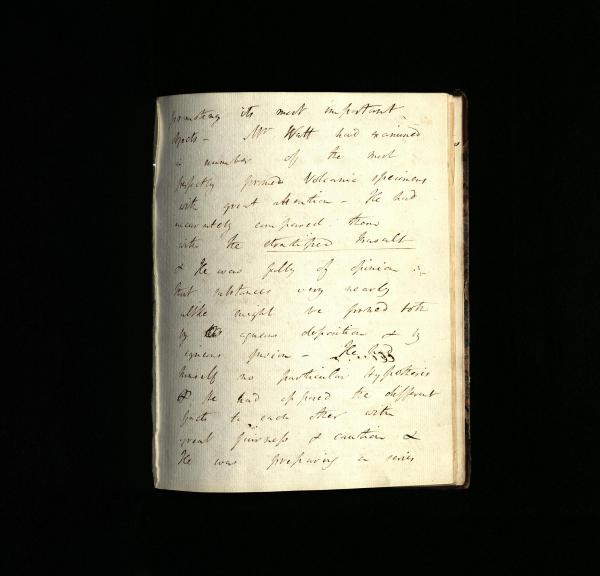 promoting its most important
objects - Mr Watt had examined
a number of the most
perfectly formed Volcanic specimens
with great attention - He had
accurately compared them
with the stratified basalt
& He was fully of opinion
that substances very nearly
alike might be formed both
by aqueous deposition & by
igneous fusion - He had
himself no particular hypothesis
& he had opposed the different
facts to each other with
great fairness & caution &
He was preparing a series